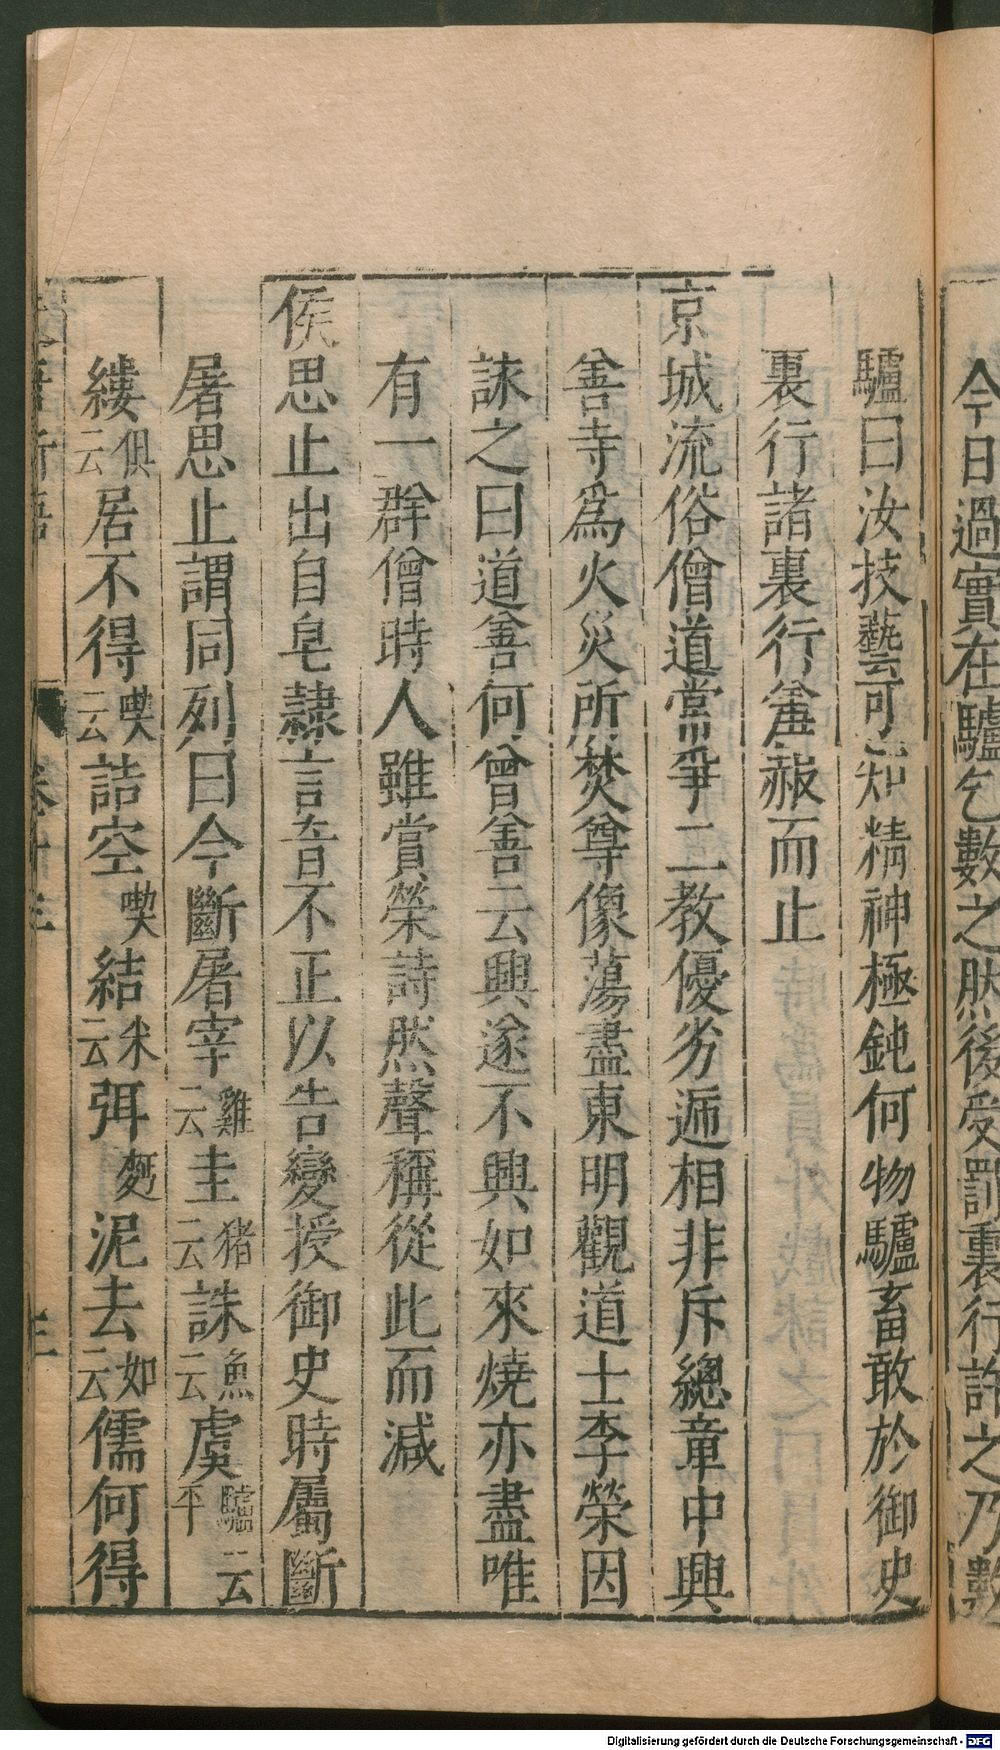 今日過實在驢乞數之然後受罰裏行許之乃數
驢曰汝技藝可知精神極鈍何物驢畜敢於御史
裏行諸裏行羞赧而止
京城流俗僧道常爭二教優劣遞相非斥總章中興
善寺爲火災所焚尊像蕩盡東明觀道士李榮因
詠之曰道善何曾善云興遂不興如來燒亦盡唯
有一群僧時人雖賞榮詩然聲稱從此而減
侯思止出自皂隷言音不正以告變授御史時屬斷
屠思止謂同列曰今斷屠宰雞云圭猪云誅魚云虞驢云平
縷俱云居不得喫云詰空喫結米云弭麪泥去如云儒何得
卷十三
三
Digitalisierung gefördert durch die Deutsche Forschungsgemeinschaft - DFG